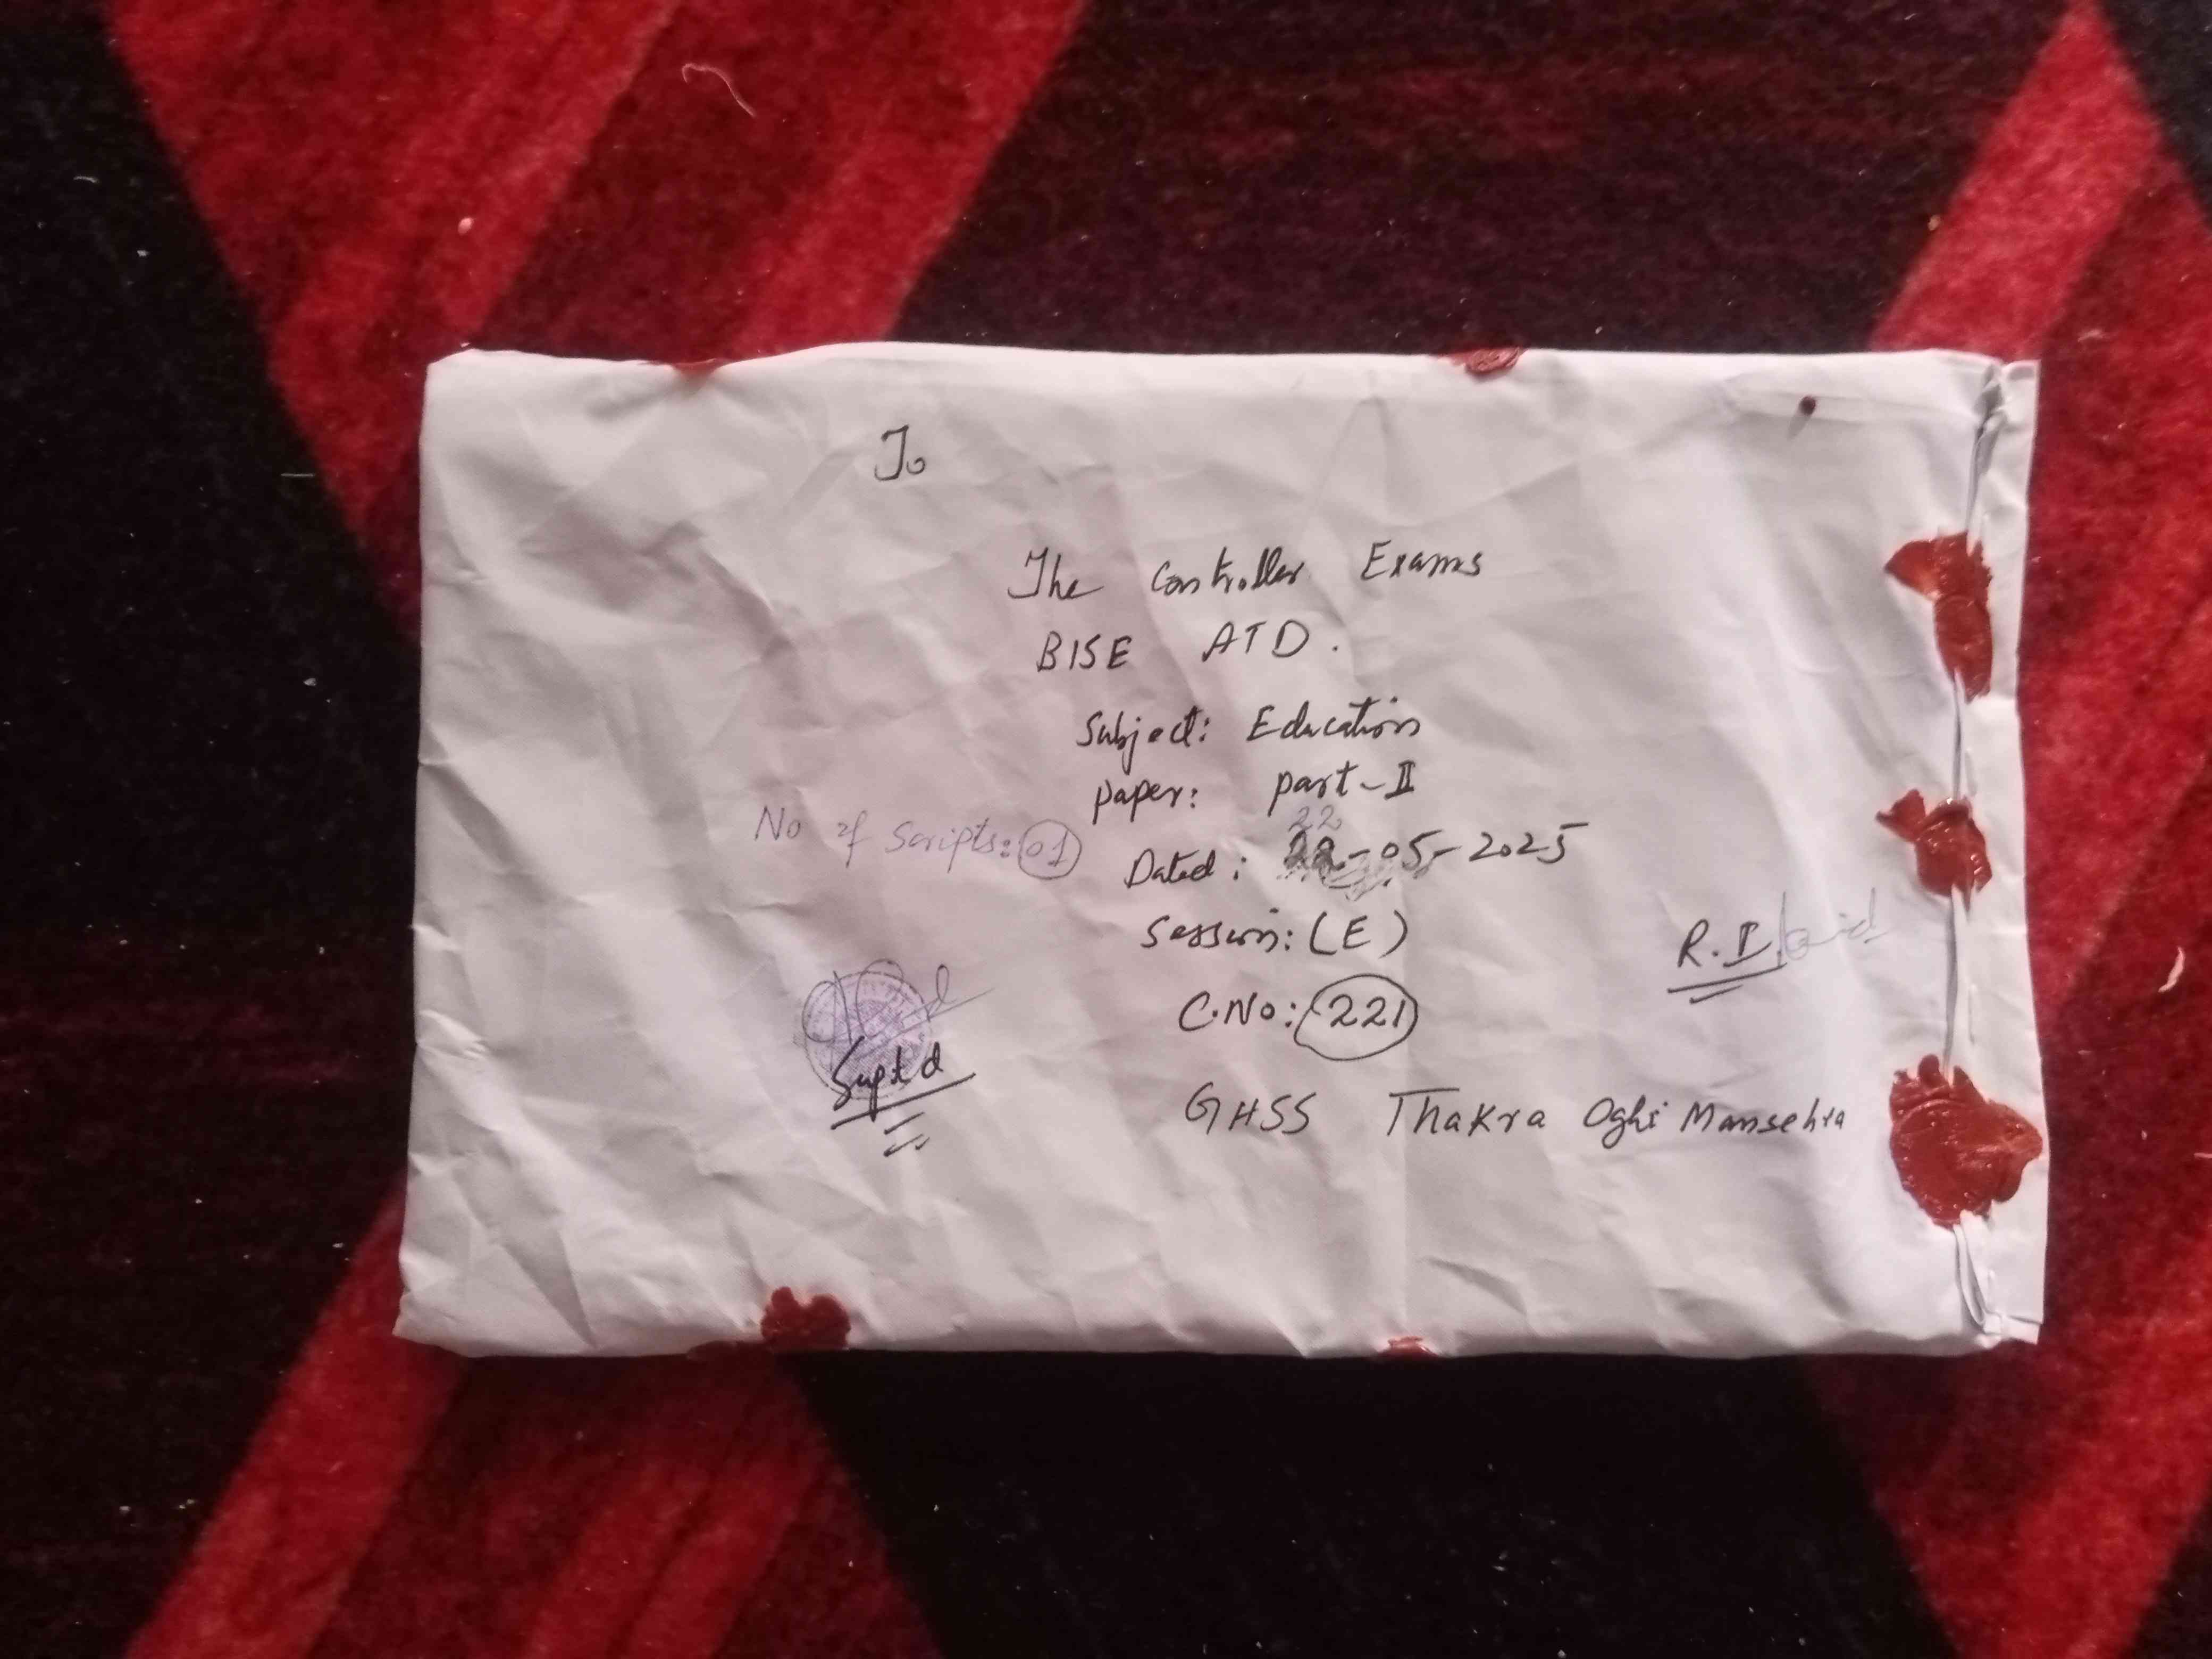 To
The Controller Exams
BISE ATD.
Subject: Education
paper: part-II
No of Scripts: 01
22
Dated: 22-05-2025
Session: (E)
R.I
C.No: 221
Suptd
GHSS Thakra Oghi Mansehra